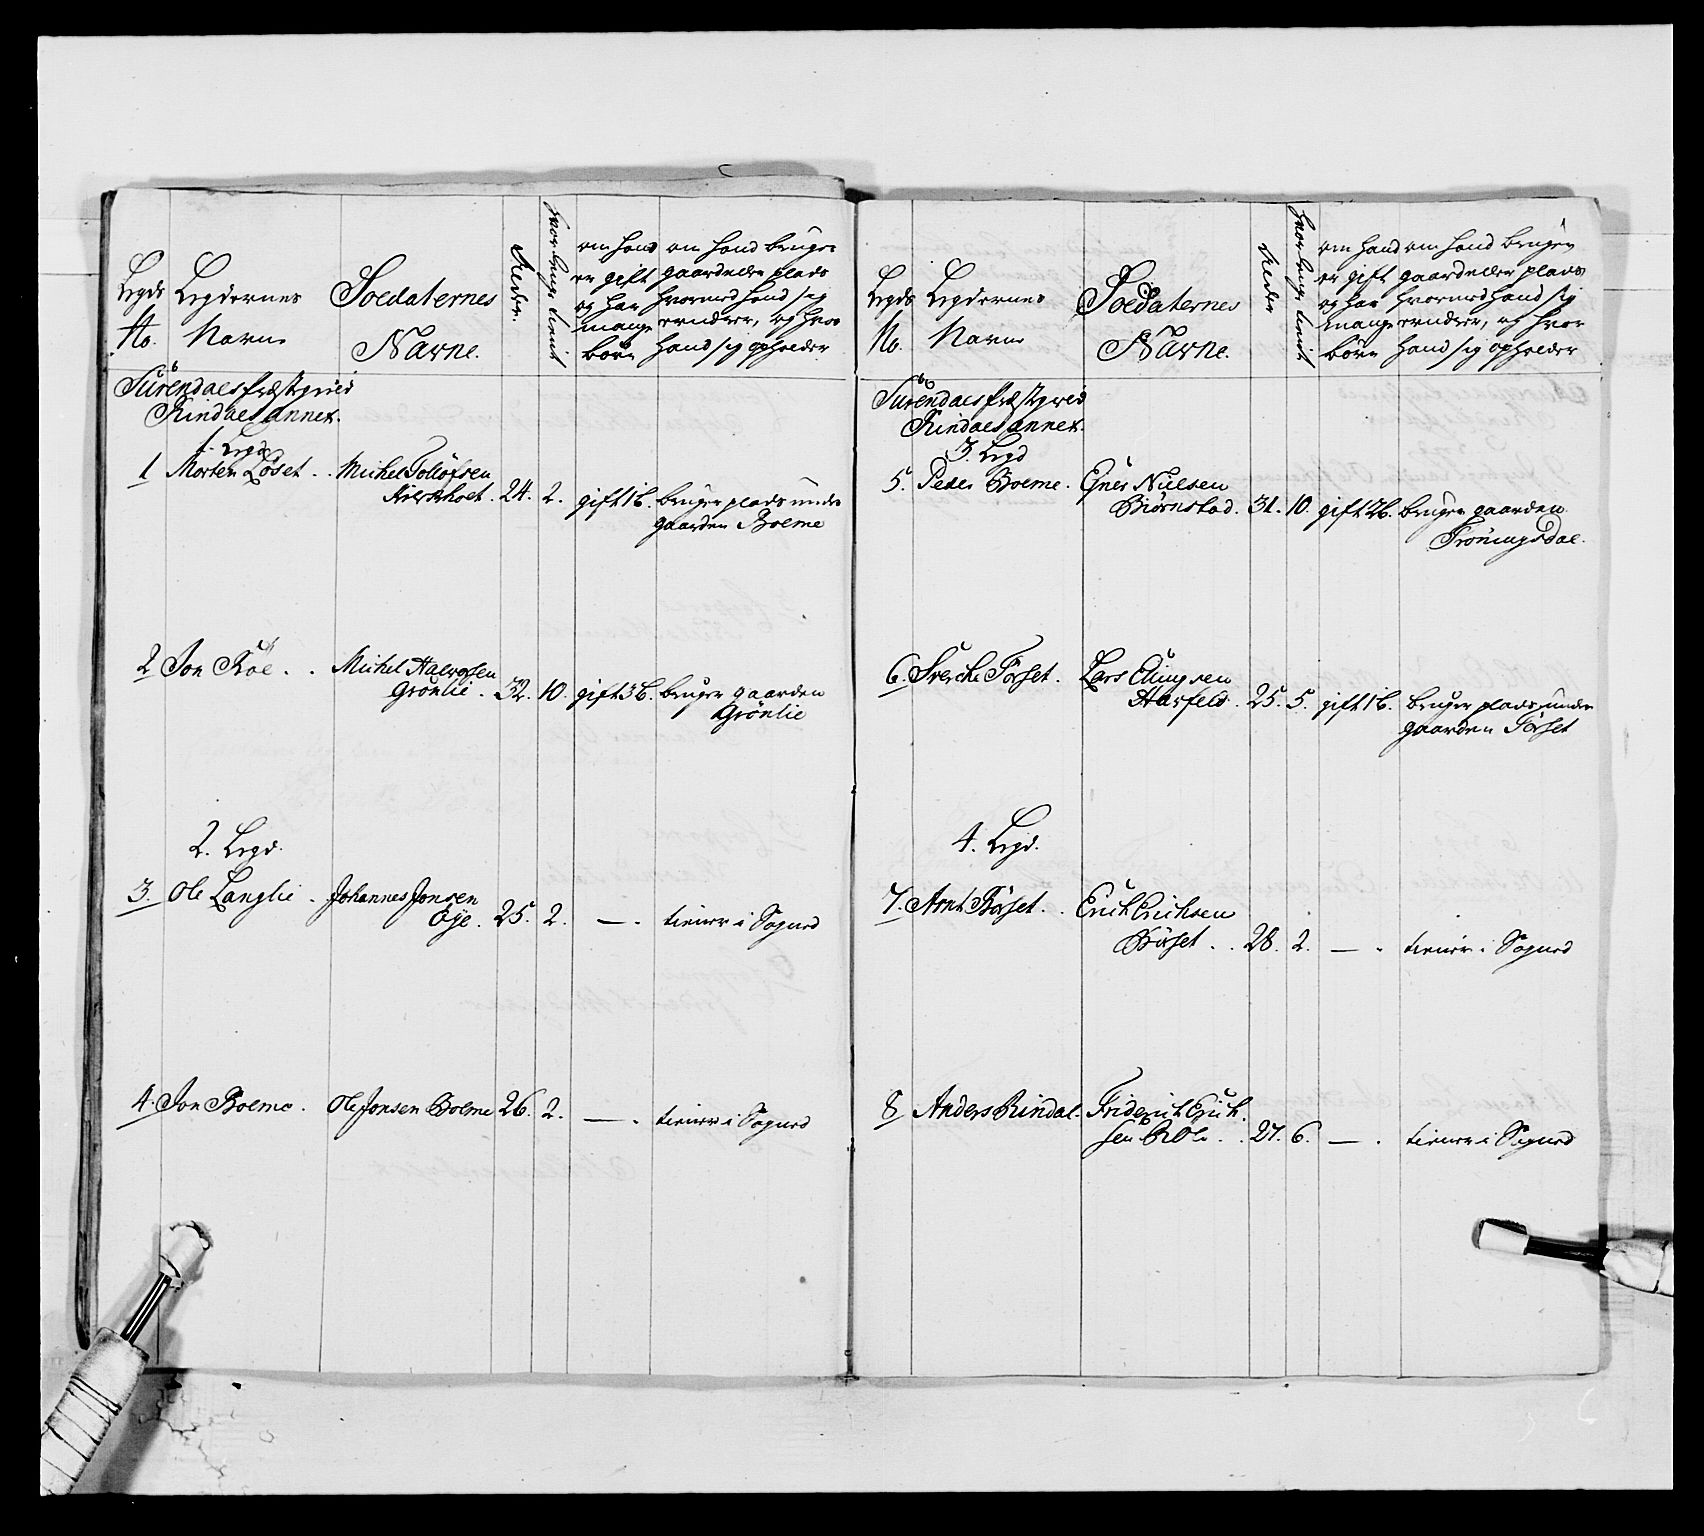 Legds
No.
Legdernes
Navne
Soldaternes
Navne.
Alder.
hvor lenge tient
om hand
er gift
og har
mange
börn
om hand bruger
gaard eller plads
hvormed hand sig
ernærer, og hvor
hand sig opholder
Surendals Præstegield
Rindals annex.
1. Legd
1 Morten Löset . . Michel Tollöfsen
24. 2. gift 1 b. bruger plads under
gaarden Bolme
2 Jon Röe . . Michel Halvorsen
Grönlie . 32. 10. gift 3 b. bruger gaarden
Grönlie
2. Legd.
3. Ole Langlie . Johannes Jonsen
Öje . 25. 2. — . tiener i Sogned
4. Jon Bolme . Ole Jonsen Bolme 26. 2. — . tiener i Sogned
Legds
No.
Legdernes
Navne
Soldaternes
Navne.
Alder
hvor lenge tient
om hand
er gift
og har
mange
börn
om hand bruger
gaard eller plads
hvormed hand sig
ernærer, og hvor
hand sig opholder
Surendals Præstegield
Rindals annex.
3. Legd
5. Peder Bolme . Ener Nielsen
Biörnstad . 31. 10. gift 2 b. bruger gaarden
Tröningsdal.
6. Sverche Förset . Lars Elingsen
Aarfeld . 25. 5. gift 1 b. bruger plads under
gaarden Förset
4. Legd.
7. Arnt Börset . . Erich Erichsen
Börset . . 28. 2. — . tiener i Sogned
8 Anders Rindal . Friderich Erich
sen Röe . . 27. 6. — . tiener i Sogned